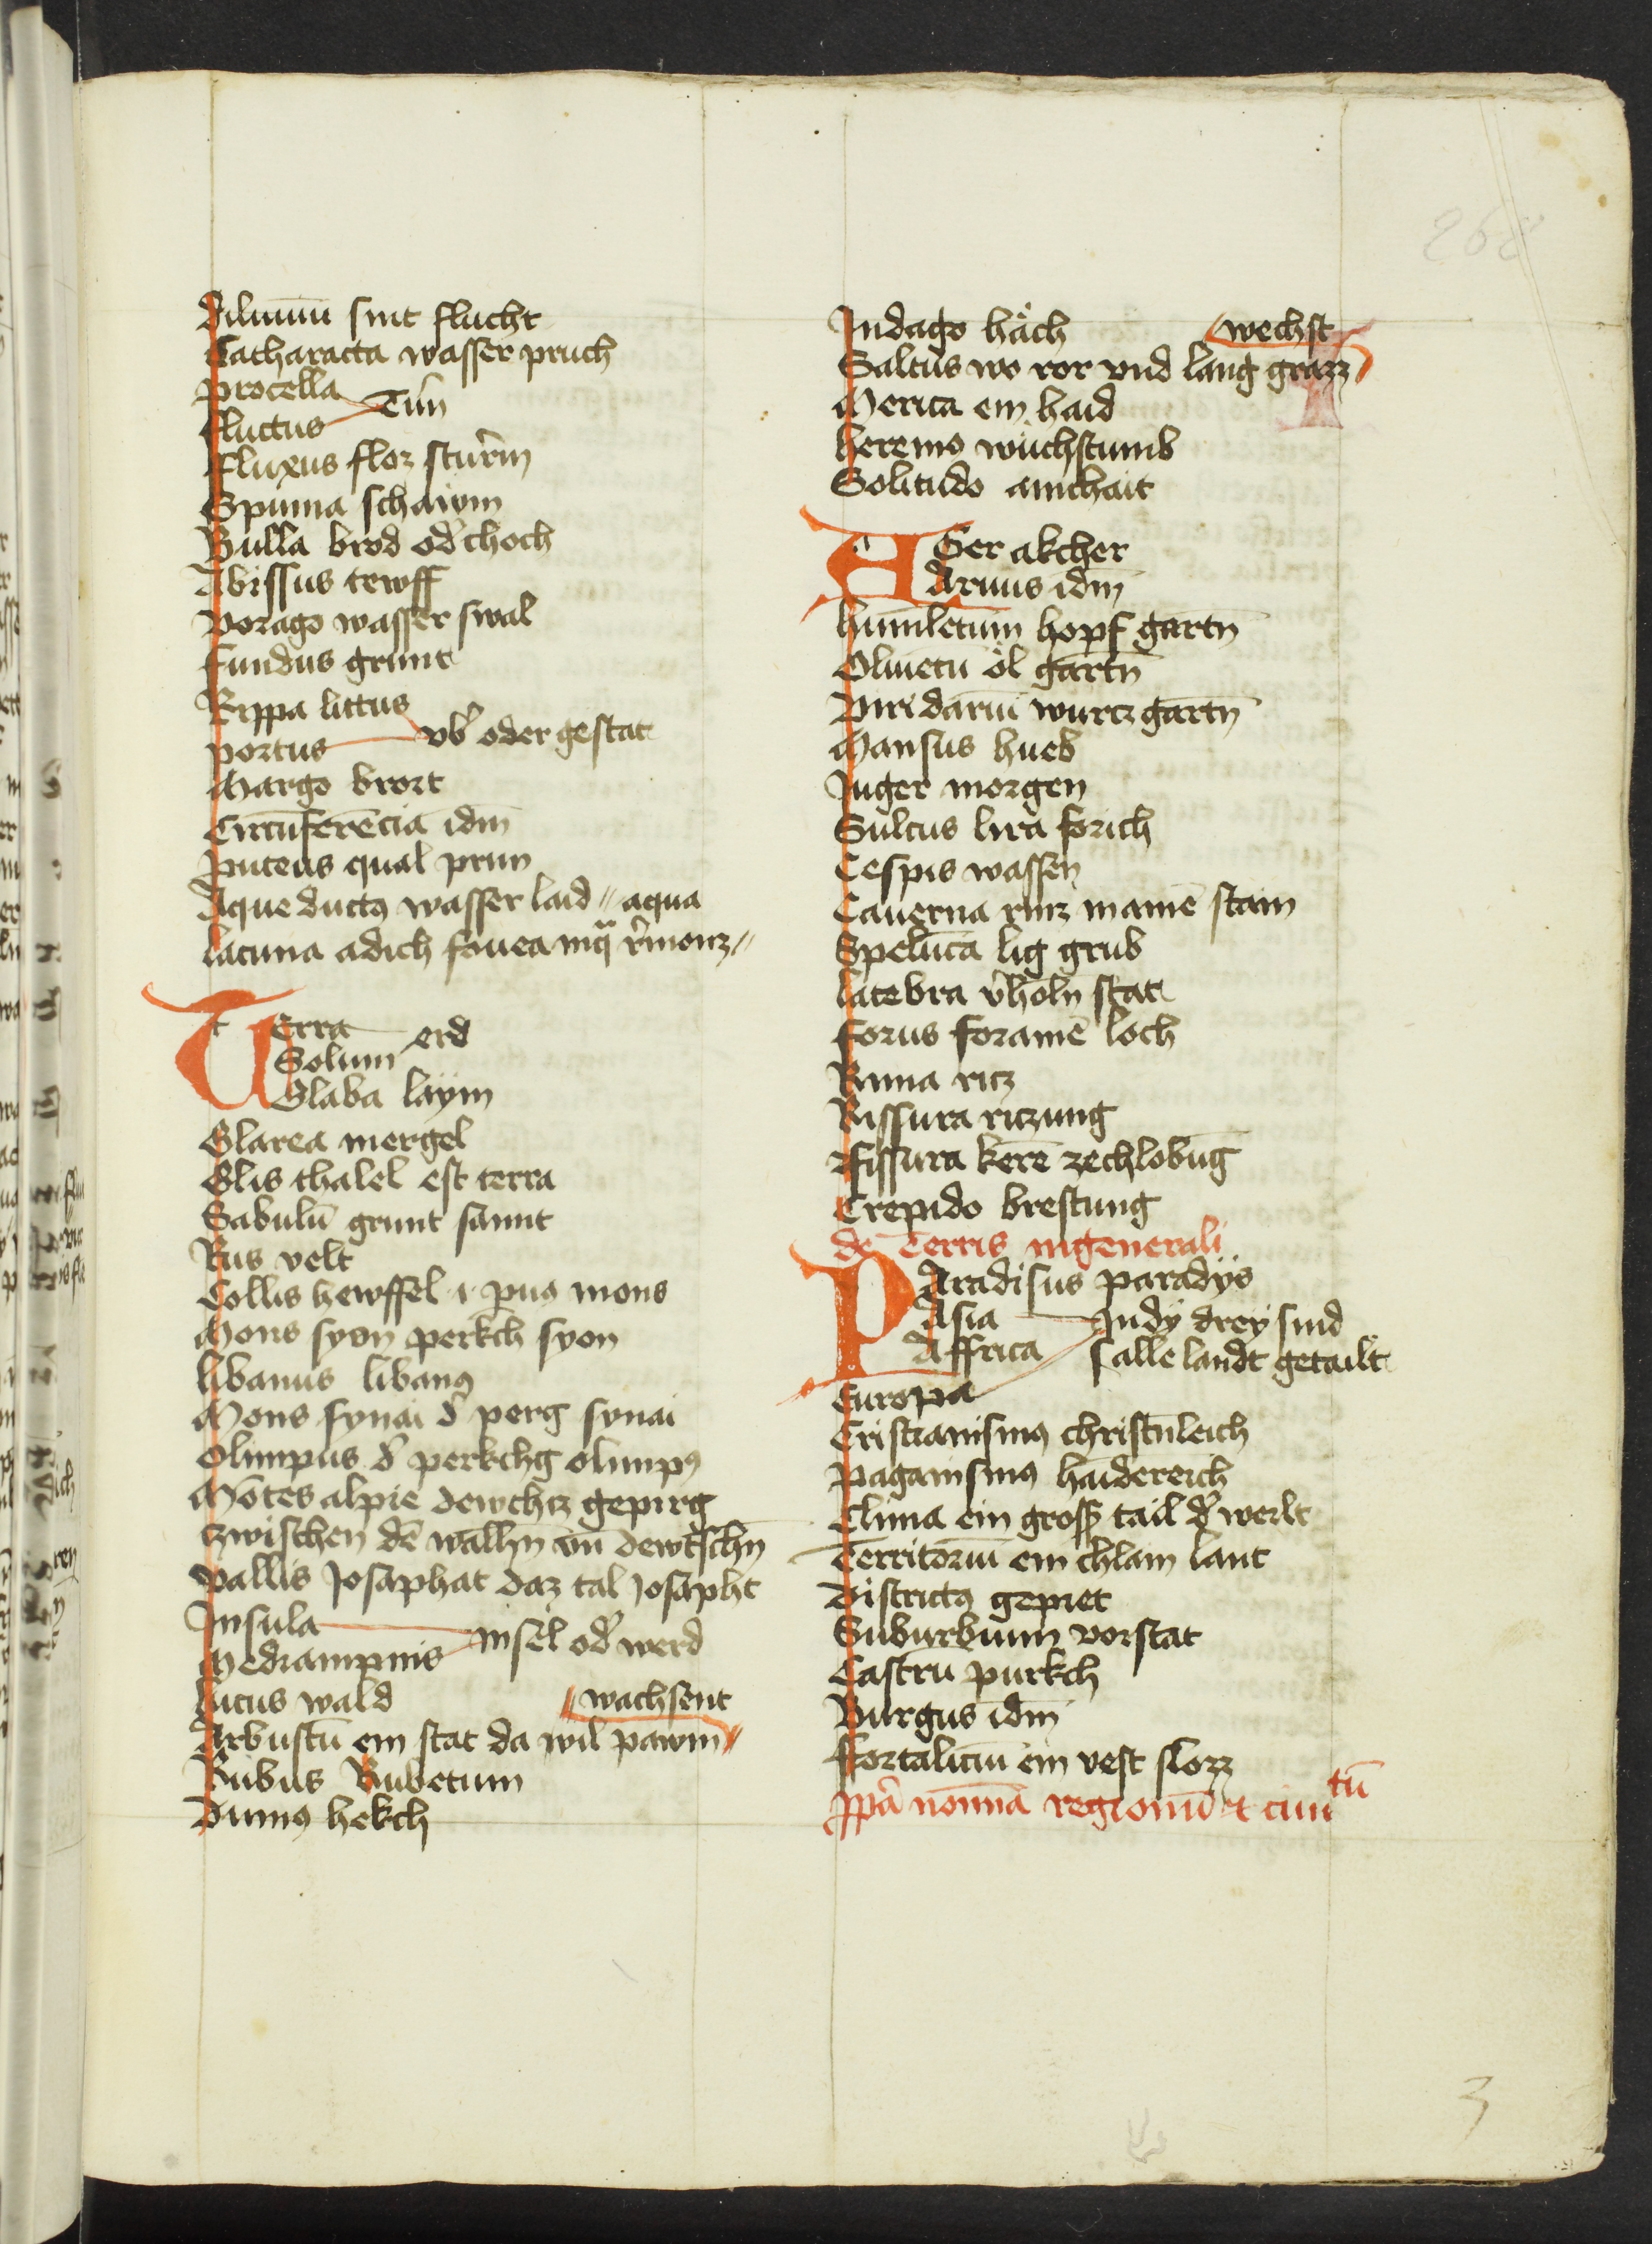 268
Diluuiū sint flucht
Catharacta wasser pruch
Procella
Fluctus Tün
Fluxus floz stur̄m
Spuma schawm
Bulla brod od̕ choch
Abissus tewff
Vorago wasser swal
Fundus grunt
Rippa littus
portus vb̕ oder gestat
Margo brort
Circūferēcia idm̄
Puteus qual prun
Aque ductꝰ wasser laid // aqua
lacuna adich fouea
Terra
Solum erd
Glaba laÿm
Glarea mergel
Glis thalel est terra
Sabulū grunt sannt
Rus velt
Collis hewffel .i. puꝰ mons
Mons syon perkch syon
libanus libanꝰ
Mons synai d̕ perg synai
Olimpus d̕ perkchg olimpꝰ
Mōtes alpie dewchtz gepirg
tzwischen dē walhn vn̄ dewtschn̄
Vallis Josaphat daz tal Josapht
Insula
Mediampnis insel od̕ werd
lucus wald // wachsent
Arbustū ein stat da wil pawm //
Rubus Rubetum
Dumꝰ hekch
Indago häch wechst
Saltus wo ror vnd lang grazz
Merica ein haid
heremꝰ wüchstumb
Solitudo ainchait
AGer akcher
Aruus idm̄
humiletum hopf gartn̄
Oliuetū öl gartn̄
Viridariū wurcz gartn̄
Mansus hueb
Juger morgen
Sulcus lira forich
Cespis wassen
Cauerna rinz in ainē stam
Spelūca lig grub
latebra v̕holn̄ stat
Forus foramē loch
Rima ritz
Rissura ritzung
Fissura kerē zechlobūg
Crepido brestung
de Terris ingenerali
PAradisus paradys
Asia Indy drey sind
Affrica alle landt getailt
Europa
Cristianismꝰ christnleich
Paganismꝰ haidereich
Clima ein gross tail d̕ werlt
Territoriū ein chlain lant
Districtꝰ gepiet
Suburbium vorstat
Castrū purkch
Burgus idm̄
Fortaliciū ein vest slozz
ꝓpa nomina regionū et ciuitū
3